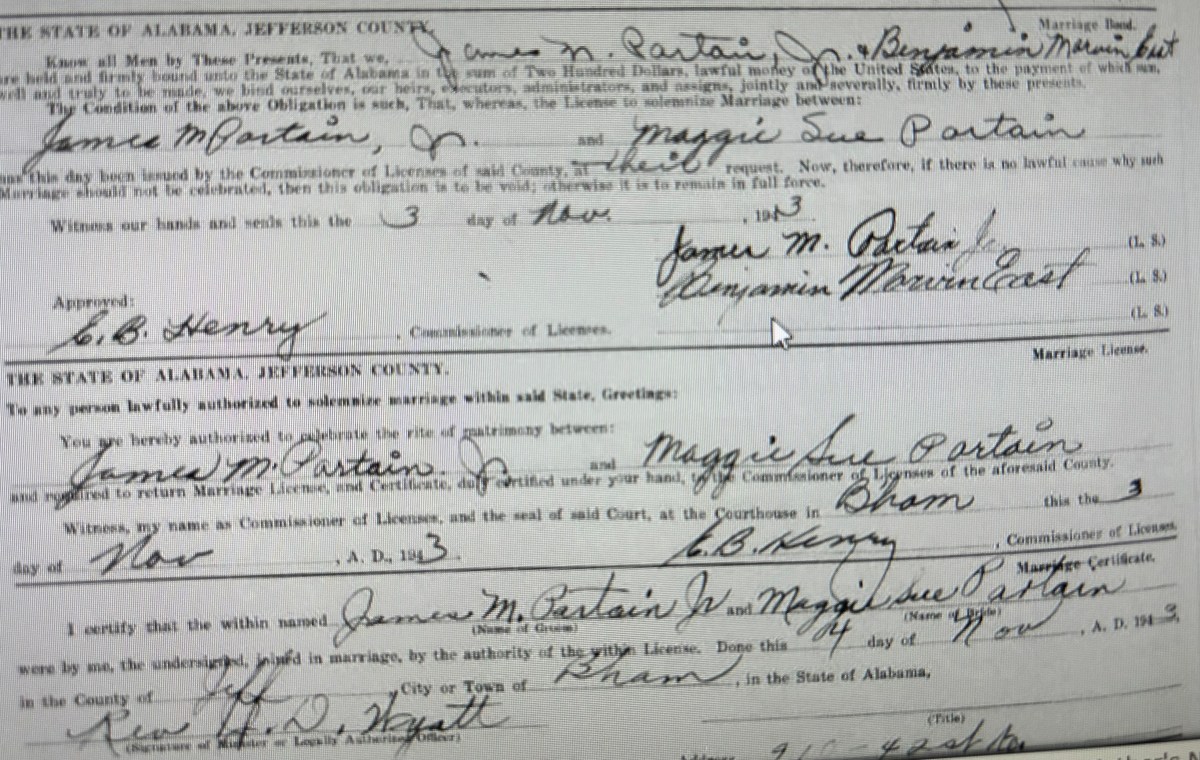 THE STATE OF ALABAMA, JEFFERSON COUNTY. Marriage Bond.
Know all Men by These Presents, That we, James M. Partain, Jr. & Benjamin Marvin East
are held and firmly bound unto the State of Alabama in the sum of Two Hundred Dollars, lawful money of the United States, to the payment of which sum,
well and truly to be made, we bind ourselves, our heirs, executors, administrators, and assigns, jointly and severally, firmly by these presents.
The Condition of the above Obligation is such, That, whereas, the License to solemnize Marriage between:
James M Partain, Jr. and Maggie Sue Partain
has this day been issued by the Commissioner of Licenses of said County, at their request. Now, therefore, if there is no lawful cause why such
Marriage should not be celebrated, then this obligation is to be void; otherwise it is to remain in full force.
Witness our hands and seals this the 3 day of Nov. , 1943.
James M. Partain Jr. (L. S.)
Benjamin Marvin East (L. S.)
Approved:
(L. S.)
E. B. Henry , Commissioner of Licenses.
Marriage License.
THE STATE OF ALABAMA, JEFFERSON COUNTY.
To any person lawfully authorized to solemnize marriage within said State, Greetings:
You are hereby authorized to celebrate the rite of matrimony between:
James M. Partain. Jr and Maggie Sue Partain
and required to return Marriage License, and Certificate, duly certified under your hand, to the Commissioner of Licenses of the aforesaid County.
Witness, my name as Commissioner of Licenses, and the seal of said Court, at the Courthouse in Bham this the 3
day of Nov , A. D., 1943. E. B. Henry , Commissioner of Licenses.
Marriage Certificate.
I certify that the within named James M. Partain Jr and Maggie Sue Partain
(Name of Groom) (Name of Bride)
were by me, the undersigned, joined in marriage, by the authority of the within License. Done this 4 day of Nov , A. D. 1943,
in the County of Jeff , City or Town of Bham , in the State of Alabama,
Rev H. D. Wyatt
(Signature of Minister or Legally Authorized Officer) (Title)